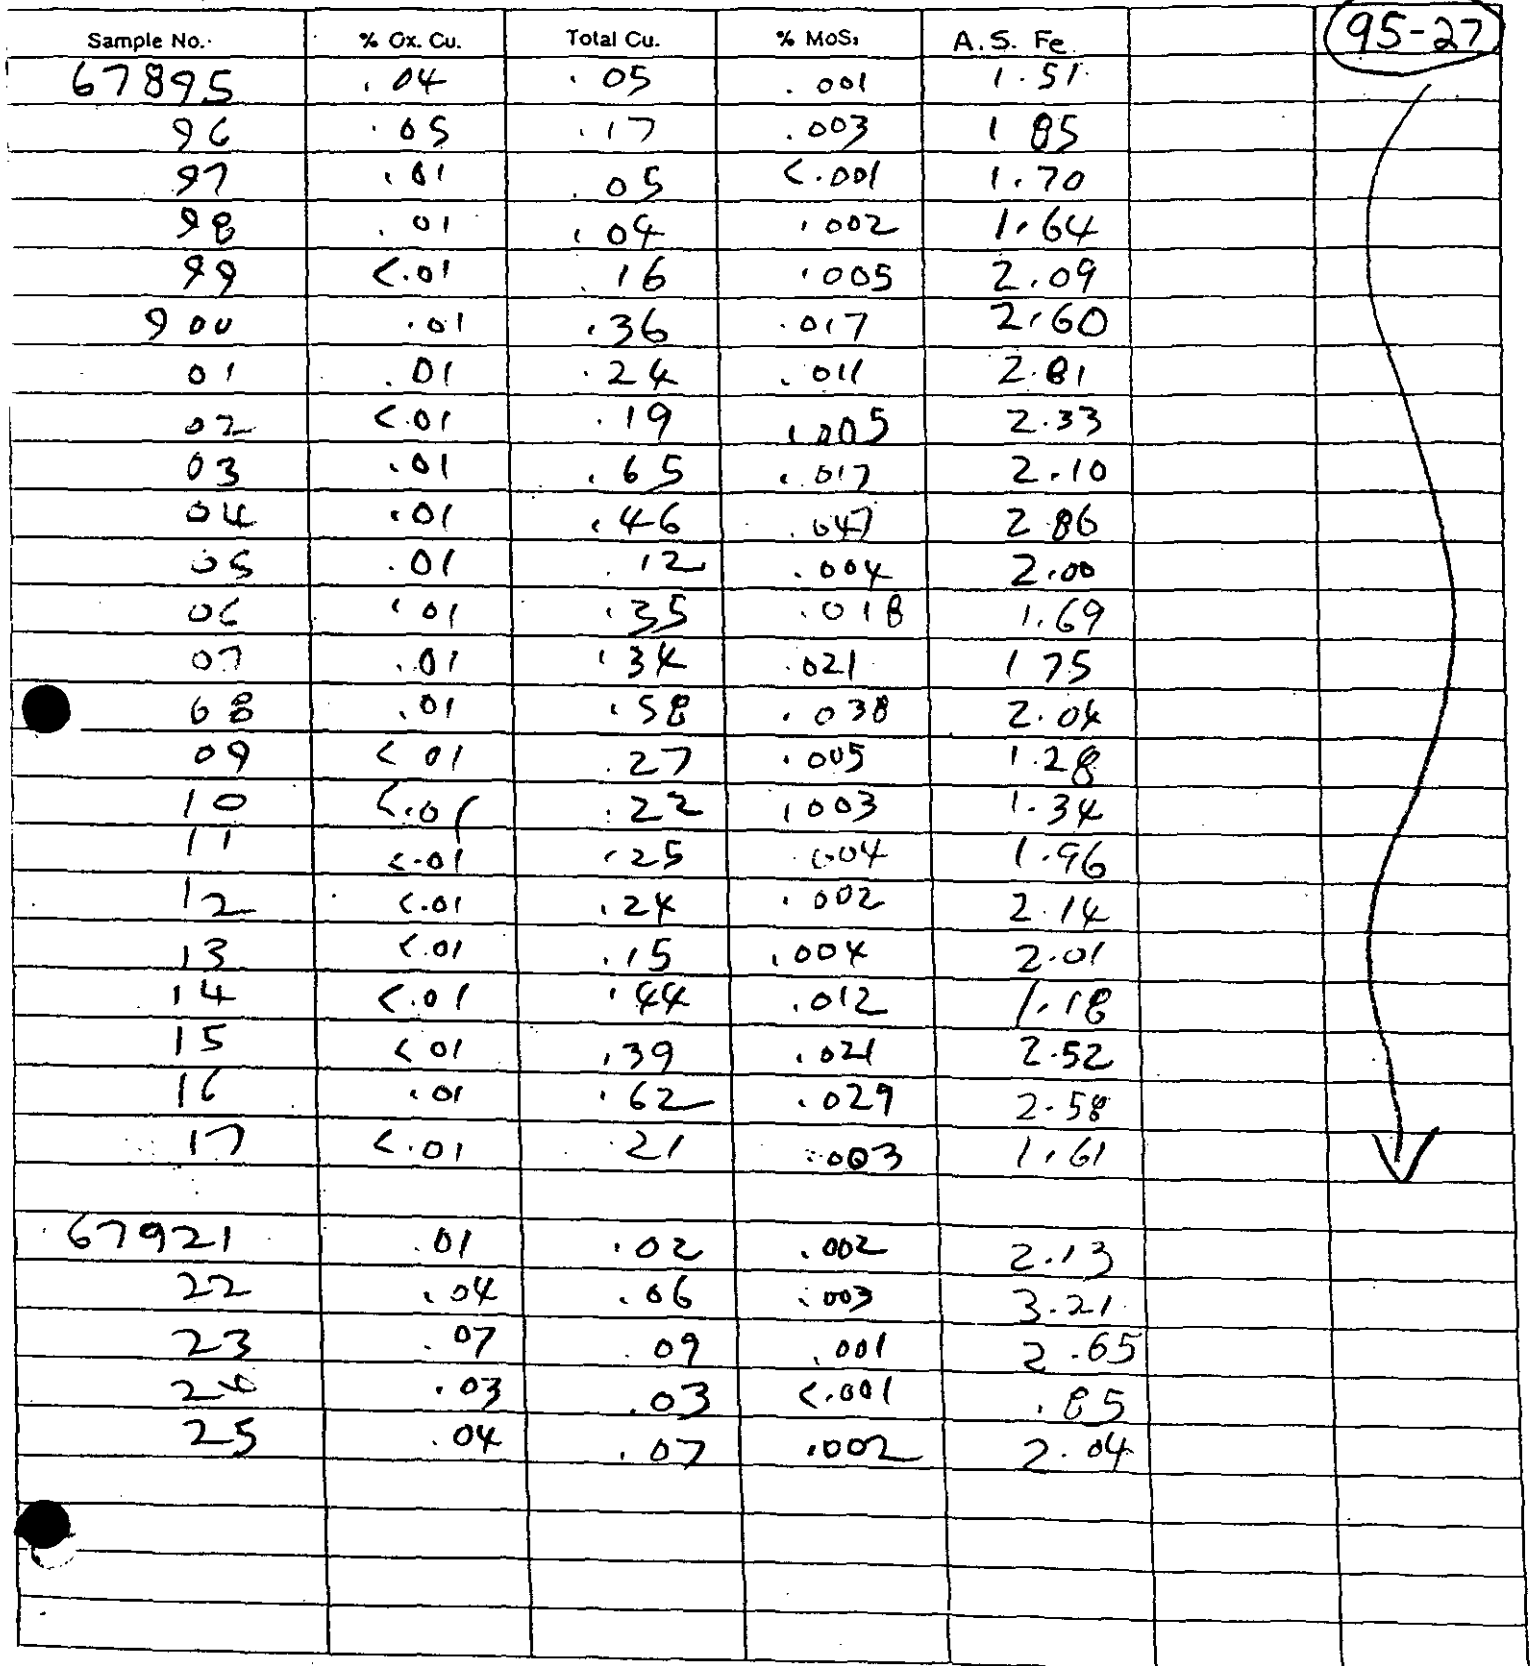 Sample No. % Ox. Cu. Total Cu. % MoS₂ A.S. Fe 95-27
67895 .04 .05 .001 1.51
96 .05 .17 .003 1 85
97 .01 .05 <.001 1.70
98 .01 .04 .002 1.64
99 <.01 .16 .005 2.09
900 .01 .36 .017 2.60
01 .01 .24 .011 2.81
02 <.01 .19 .005 2.33
03 .01 .65 .017 2.10
04 .01 .46 .047 2 86
05 .01 .12 .004 2.00
06 .01 .35 .018 1.69
07 .01 .34 .021 1 75
08 .01 .58 .038 2.04
09 < 01 .27 .005 1.28
10 <.01 .22 .003 1.34
11 <.01 .25 .004 1.96
12 <.01 .24 .002 2.14
13 <.01 .15 .004 2.01
14 <.01 .44 .012 1.18
15 < 01 .39 .021 2.52
16 .01 .62 .029 2.58
17 <.01 .21 .003 1.61
67921 .01 .02 .002 2.13
22 .04 .06 .003 3.21
23 .07 .09 .001 2.65
24 .03 .03 <.001 .85
25 .04 .07 .002 2.04